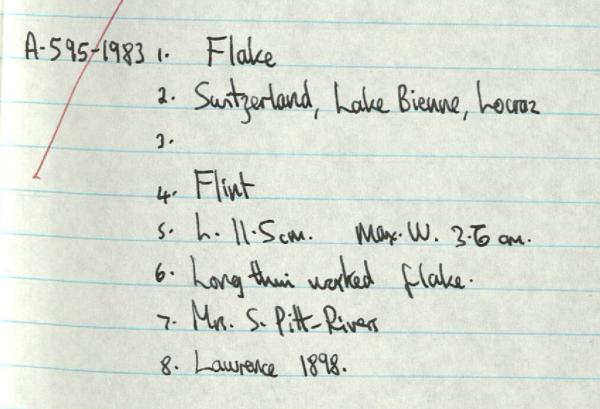 A·595-1983 1. Flake
2. Switzerland, Lake Bienne, Locraz
3.
4. Flint
5. L. 11.5cm. Max. W. 3.6 cm.
6. Long thin worked flake.
7. Mrs. S. Pitt-Rivers
8. Lawrence 1898.